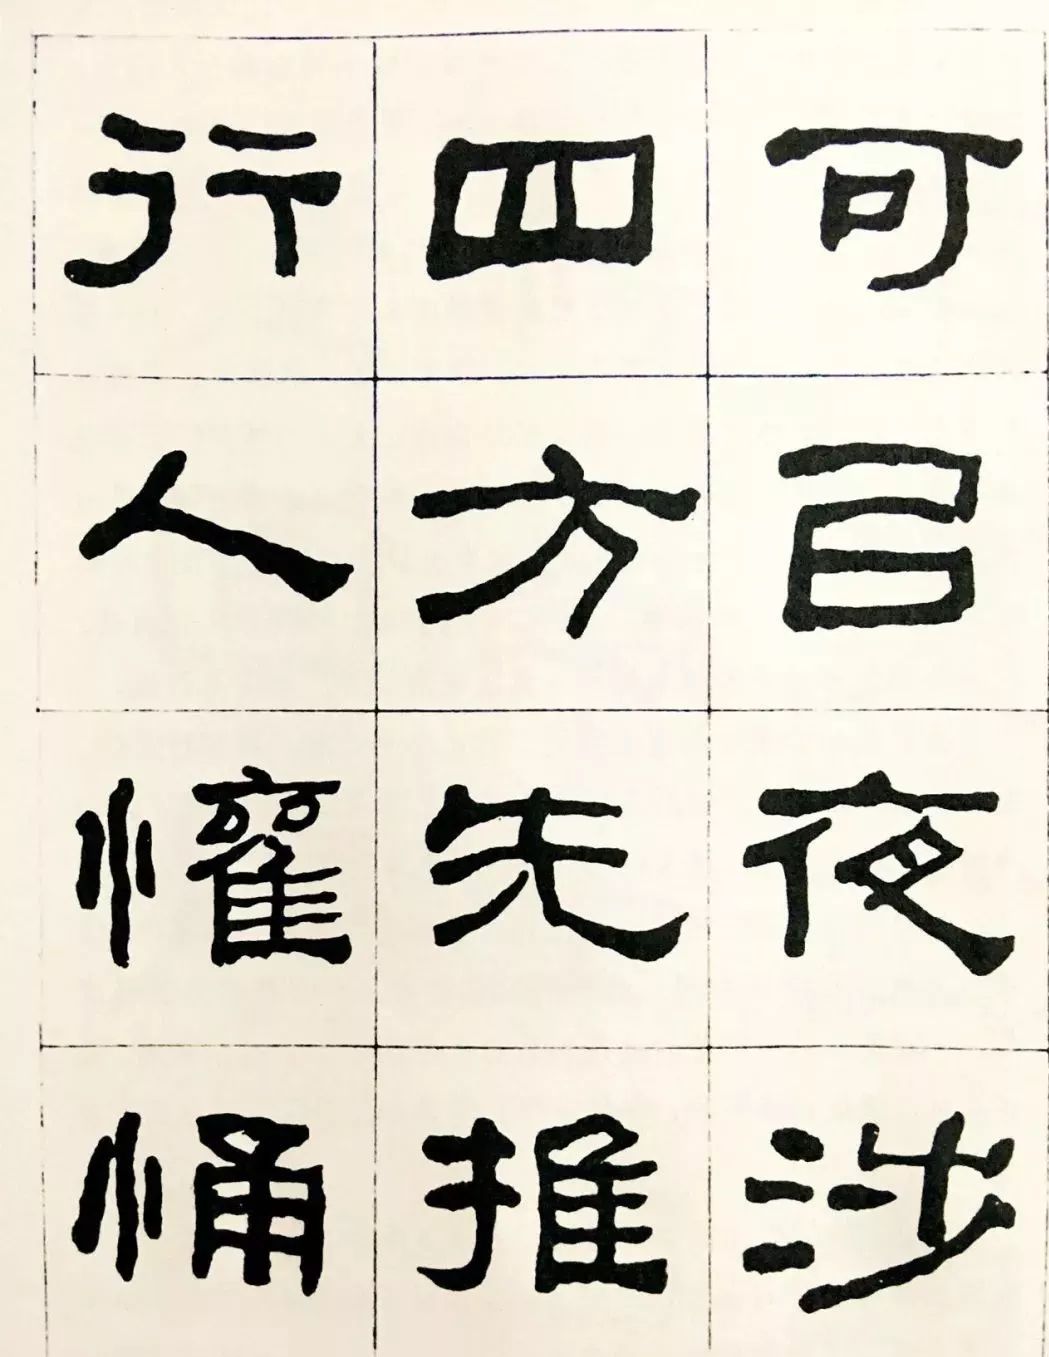 可以夜涉
四方无雍
行人懽悀